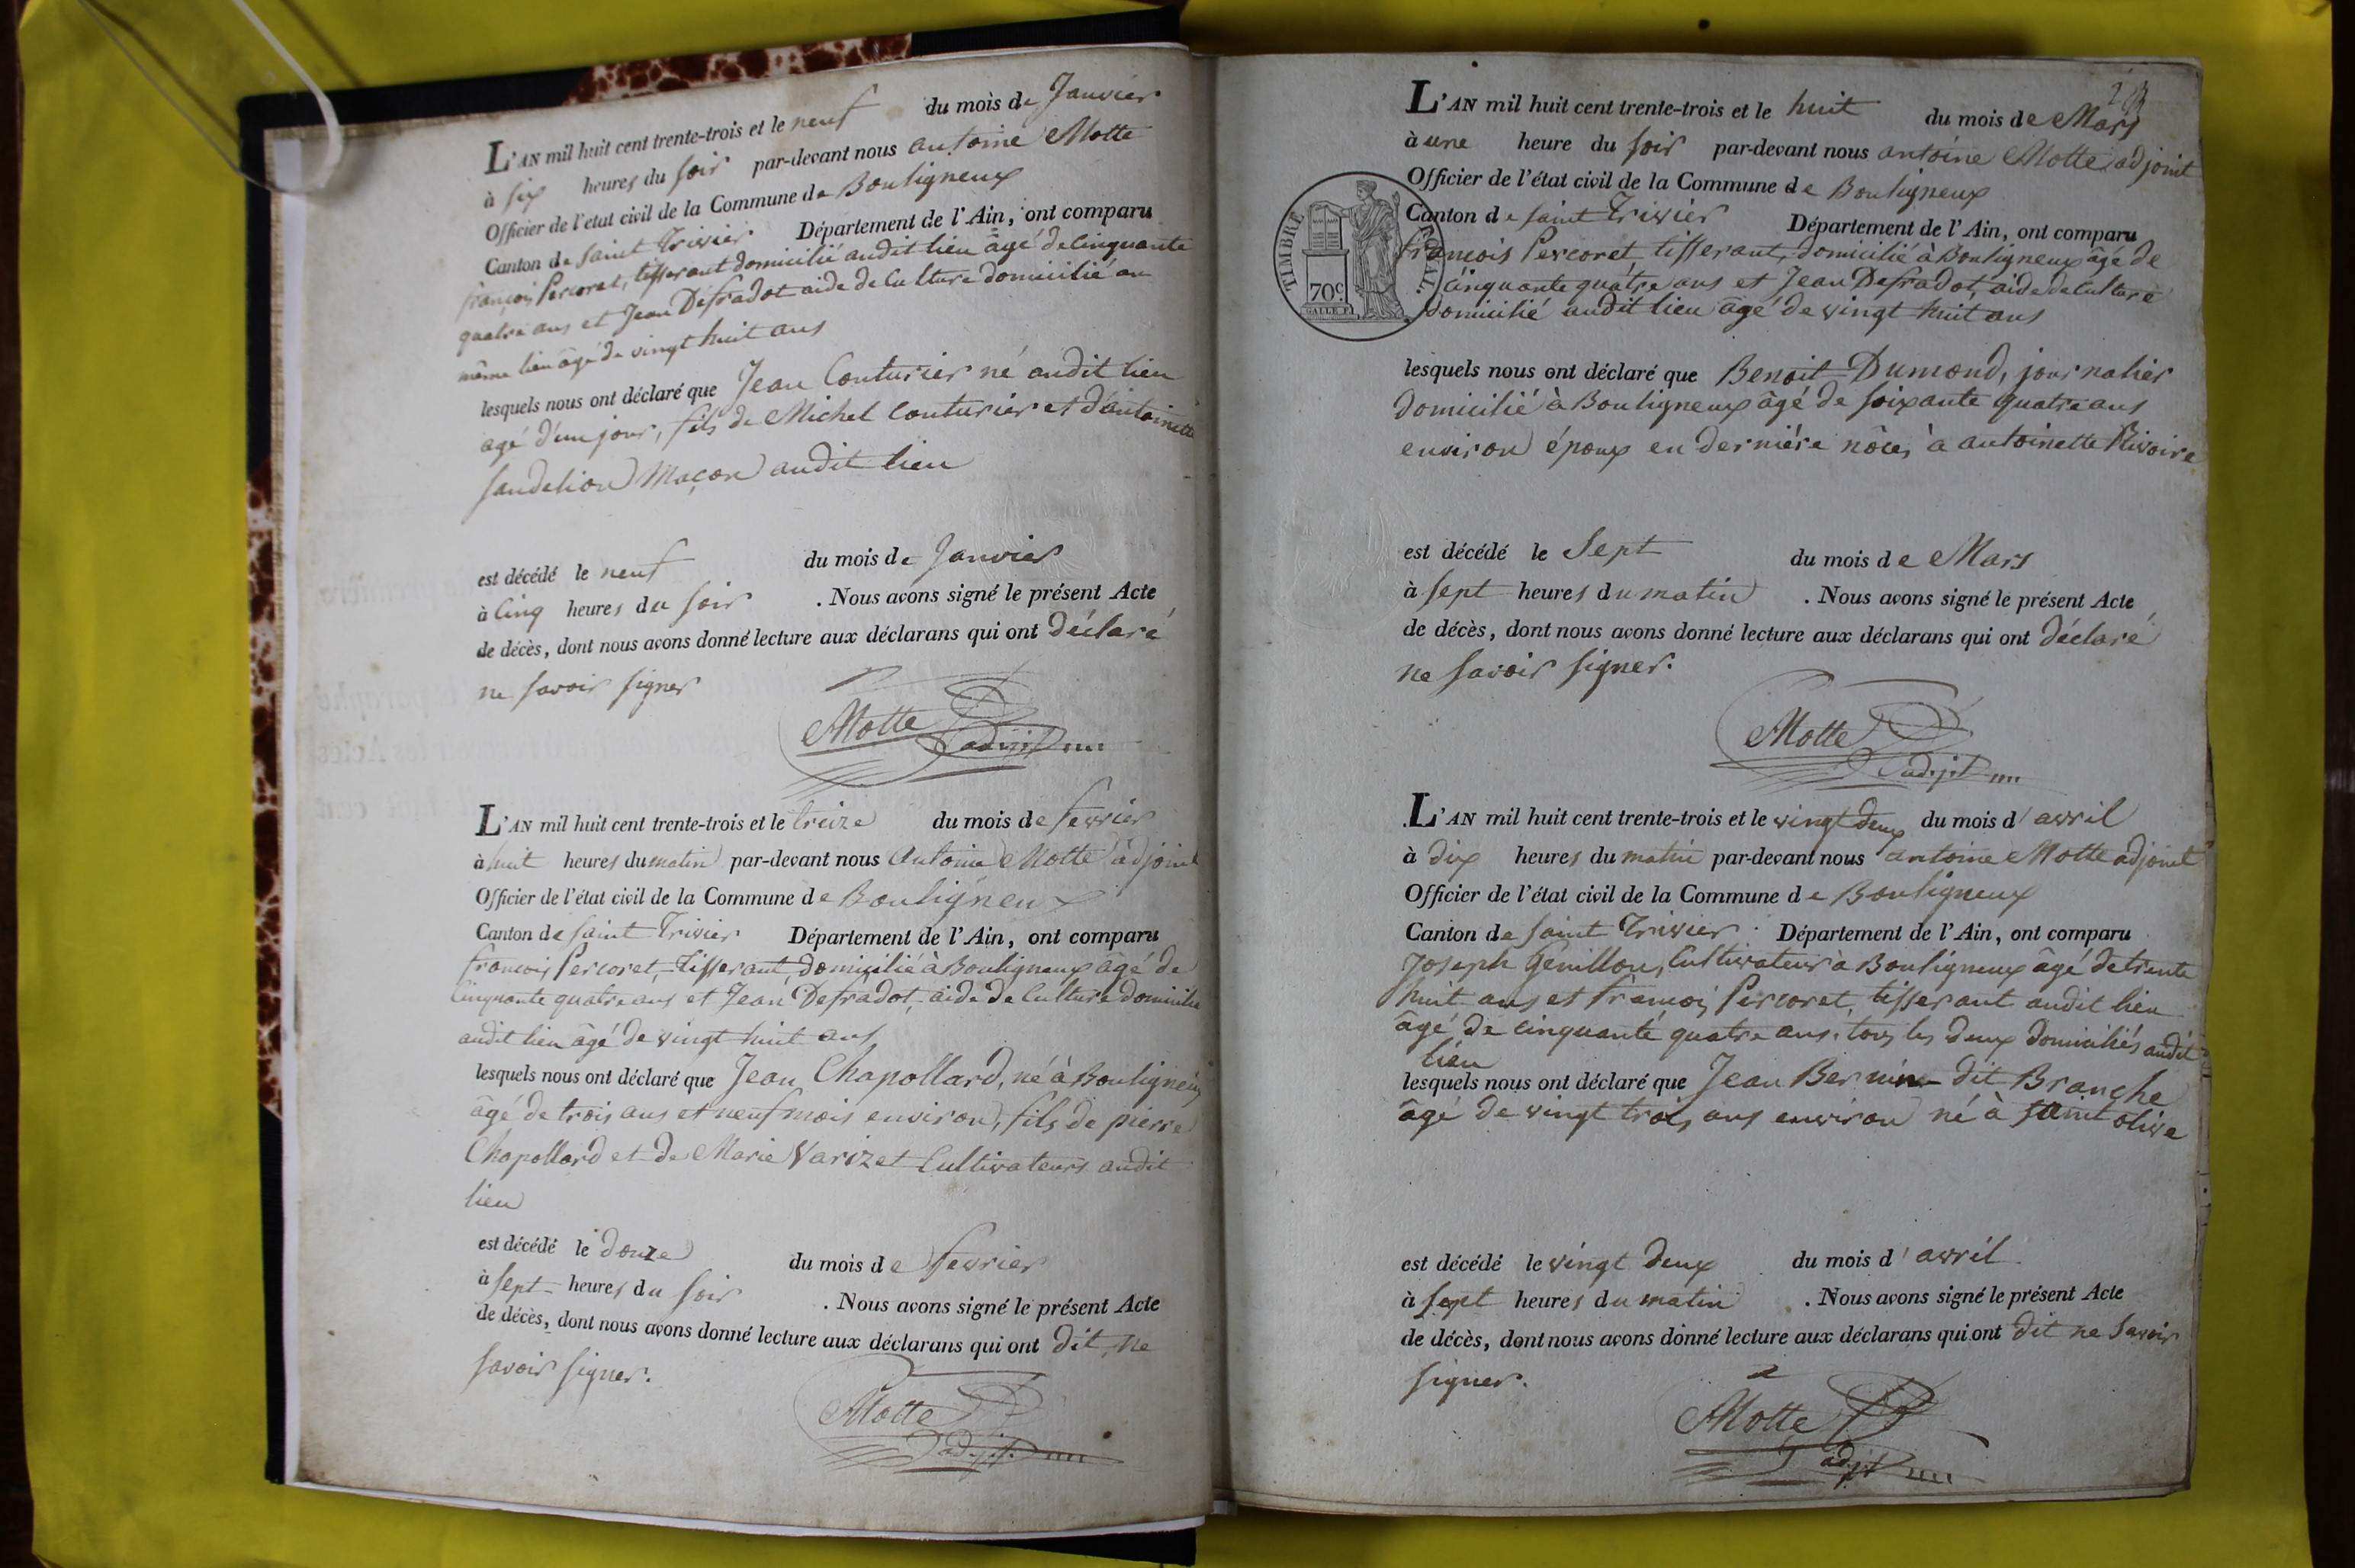 L'AN mil huit cent trente-trois et le neuf du mois de Janvier
à six heures du soir par-devant nous antoine Motte
Officier de l'état civil de la Commune de Bouligneux
Canton de saint Trivier Département de l'Ain, ont comparu
françois Percoret, tisserant domicilié audit lieu âgé de Cinquante
quatre ans et Jean Defradot aide de Culture domicilié au
même lieu âgé de vingt huit ans
lesquels nous ont déclaré que Jean Couturier né audit lieu
agé d'un jour, fils de Michel Couturier et d'antoinette
Sandelion Maçon audit lieu
est décédé le neuf du mois de Janvier
à Cinq heures du soir . Nous avons signé le présent Acte
de décès, dont nous avons donné lecture aux déclarans qui ont déclaré
ne savoir signer
Motte
adjt
L'AN mil huit cent trente-trois et le treize du mois de fevrier
à huit heures du matin par-devant nous Antoine Motte adjoint
Officier de l'état civil de la Commune de Bouligneux
Canton de saint Trivier Département de l'Ain, ont comparu
françois Percoret, Tisserant domicilié à Bouligneux âgé de
Cinquante quatre ans et Jean Defradot, aide de Culture domicilié
audit lieu âgé de vingt huit ans
lesquels nous ont déclaré que Jean Chapollard, né à Bouligneux
âgé de trois ans et neuf mois environ, fils de pierre
Chapollard et de Marie Varizet Cultivateurs audit
lieu
est décédé le douze du mois de fevrier
à sept heures du soir . Nous avons signé le présent Acte
de décès, dont nous avons donné lecture aux déclarans qui ont dit ne
savoir signer.
Motte
adjt
L'AN mil huit cent trente-trois et le huit du mois de Mars
à une heure du soir par-devant nous antoine Motte adjoint
Officier de l'état civil de la Commune de Bouligneux
Canton de saint Trivier Département de l'Ain, ont comparu
françois Percoret, tisserant, domicilié à Bouligneux âgé de
Cinquante quatre ans et Jean Defradot, aide de Culture
domicilié audit lieu âgé de vingt huit ans
TIMBRE ROYAL.
70c.
lesquels nous ont déclaré que Benoit Dumond, journalier
domicilié à Bouligneux âgé de soixante quatre ans
environ époux en derniére nôces à antoinette Rivoire
est décédé le Sept du mois de Mars
à sept heures du matin . Nous avons signé le présent Acte
de décès, dont nous avons donné lecture aux déclarans qui ont déclaré
ne savoir signer.
Motte
adjt
L'AN mil huit cent trente-trois et le vingt deux du mois d'avril
à dix heures du matin par-devant nous antoine Motte adjoint
Officier de l'état civil de la Commune de Bouligneux
Canton de saint Trivier Département de l'Ain, ont comparu
Joseph Genillon, Cultivateur à Bouligneux âgé de trente
huit ans et françois Percoret, tisserant audit lieu
âgé de cinquante quatre ans. tous les deux domiciliés audit
lieu
lesquels nous ont déclaré que Jean Bernin dit Branche
âgé de vingt trois ans environ né à saint olive
est décédé le vingt deux du mois d'avril
à sept heures du matin . Nous avons signé le présent Acte
de décès, dont nous avons donné lecture aux déclarans qui ont dit ne savoir
signer.
Motte
adjt